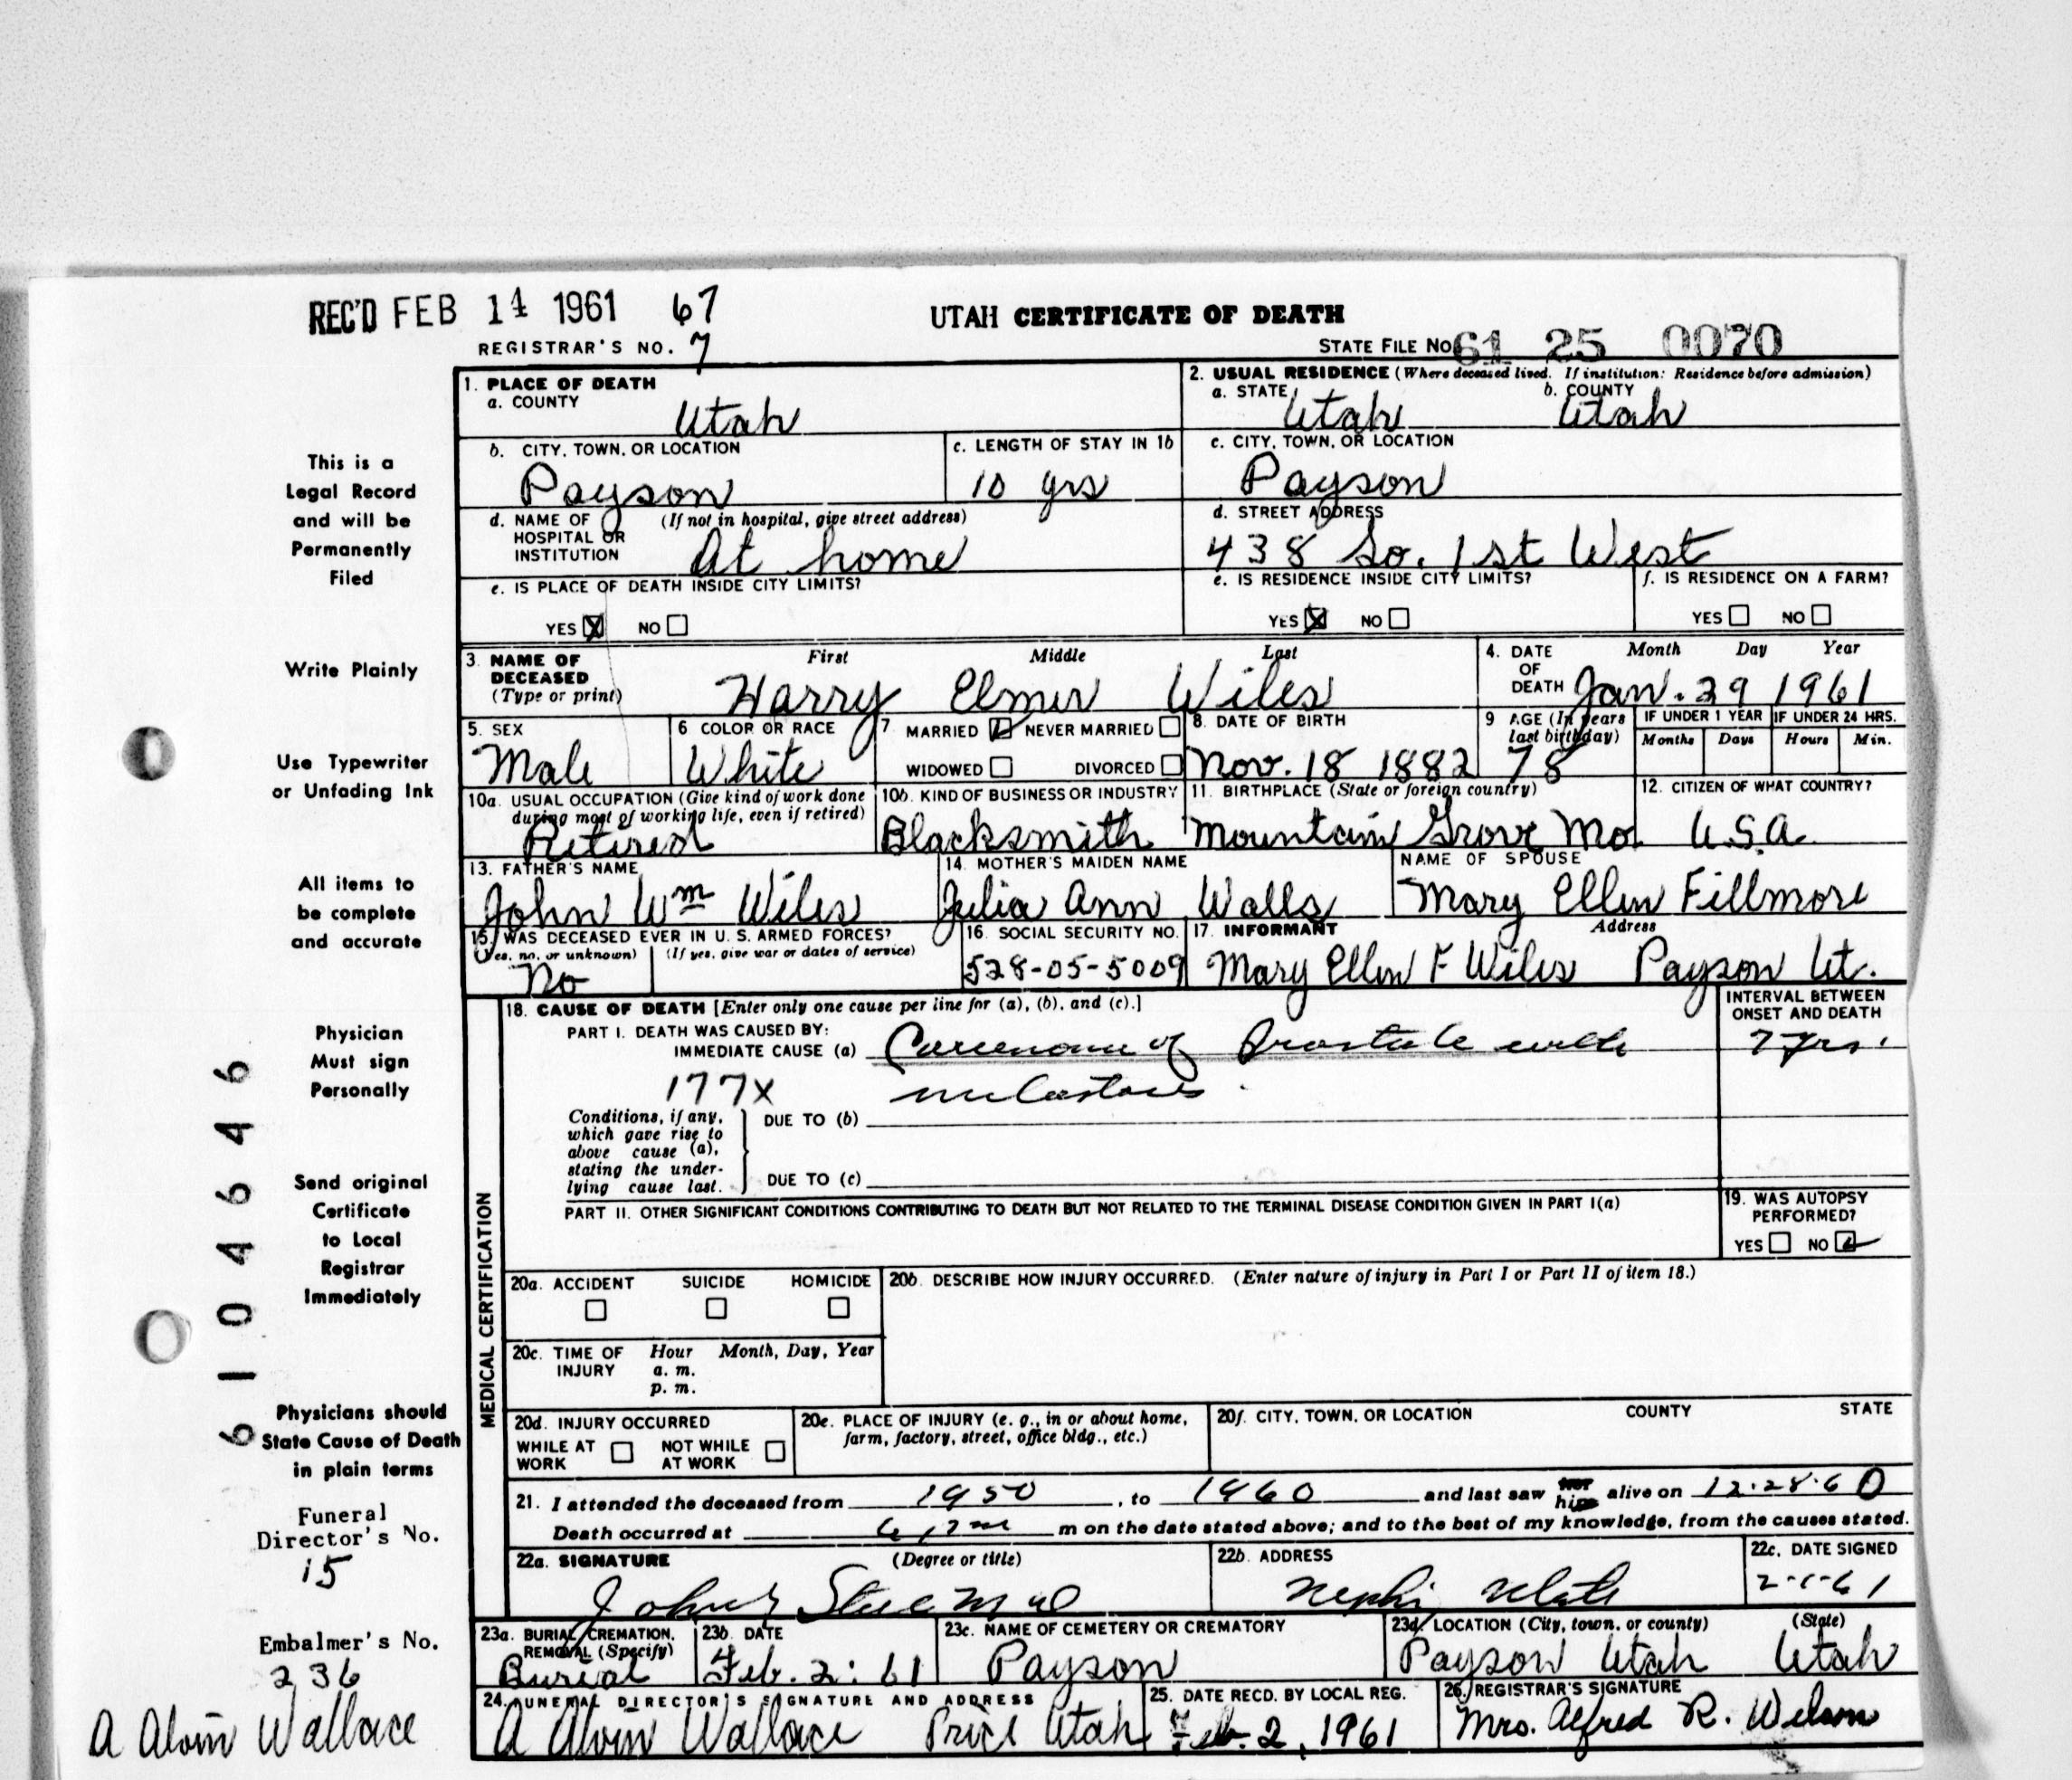 REC'D FEB 14 1961 67
UTAH CERTIFICATE OF DEATH
REGISTRAR'S NO. 7
STATE FILE No. 61 25 0070
1. PLACE OF DEATH
a. COUNTY
Utah
2. USUAL RESIDENCE (Where deceased lived. If institution: Residence before admission)
a. STATE Utah b. COUNTY Utah
b. CITY, TOWN, OR LOCATION
Payson
c. LENGTH OF STAY IN 1b
10 yrs
c. CITY, TOWN, OR LOCATION
Payson
d. NAME OF (If not in hospital, give street address)
HOSPITAL OR
INSTITUTION At home
d. STREET ADDRESS
438 So. 1st West
e. IS PLACE OF DEATH INSIDE CITY LIMITS?
YES X NO
e. IS RESIDENCE INSIDE CITY LIMITS?
YES X NO
f. IS RESIDENCE ON A FARM?
YES NO
3. NAME OF
DECEASED
(Type or print)
First Middle Last
Harry Elmer Wiles
4. DATE
OF
DEATH
Month Day Year
Jan. 29 1961
5. SEX
Male
6 COLOR OR RACE
White
7 MARRIED NEVER MARRIED
WIDOWED DIVORCED
8. DATE OF BIRTH
Nov. 18 1882
9 AGE (In years
last birthday)
78
IF UNDER 1 YEAR
Months Days
IF UNDER 24 HRS.
Hours Min.
10a. USUAL OCCUPATION (Give kind of work done
during most of working life, even if retired)
Retired
10b. KIND OF BUSINESS OR INDUSTRY
Blacksmith
11. BIRTHPLACE (State or foreign country)
Mountain Grove Mo.
12. CITIZEN OF WHAT COUNTRY?
U.S.A.
13. FATHER'S NAME
John Wm Wiles
14. MOTHER'S MAIDEN NAME
Julia Ann Walls
NAME OF SPOUSE
Mary Ellen Fillmore
15. WAS DECEASED EVER IN U. S. ARMED FORCES?
(Yes, no, or unknown) (If yes, give war or dates of service)
No
16. SOCIAL SECURITY NO.
528-05-5009
17. INFORMANT Address
Mary Ellen F Wiles Payson Ut.
MEDICAL CERTIFICATION
18. CAUSE OF DEATH [Enter only one cause per line for (a), (b), and (c).]
INTERVAL BETWEEN
ONSET AND DEATH
PART I. DEATH WAS CAUSED BY:
IMMEDIATE CAUSE (a) Carcenoma of Prostate with
7 yrs.
177X
Conditions, if any,
which gave rise to
above cause (a),
stating the under-
lying cause last.
DUE TO (b)
DUE TO (c)
PART II. OTHER SIGNIFICANT CONDITIONS CONTRIBUTING TO DEATH BUT NOT RELATED TO THE TERMINAL DISEASE CONDITION GIVEN IN PART I(a)
19. WAS AUTOPSY
PERFORMED?
YES NO
20a. ACCIDENT SUICIDE HOMICIDE
20b. DESCRIBE HOW INJURY OCCURRED. (Enter nature of injury in Part I or Part II of item 18.)
20c. TIME OF
INJURY
Hour Month, Day, Year
a. m.
p. m.
20d. INJURY OCCURRED
WHILE AT
WORK
NOT WHILE
AT WORK
20e. PLACE OF INJURY (e. g., in or about home,
farm, factory, street, office bldg., etc.)
20f. CITY, TOWN, OR LOCATION COUNTY STATE
21. I attended the deceased from 1950, to 1960 and last saw him alive on 12.28.60
Death occurred at m on the date stated above; and to the best of my knowledge, from the causes stated.
22a. SIGNATURE (Degree or title)
22b. ADDRESS
Nephi Utah
22c. DATE SIGNED
2-1-61
23a. BURIAL, CREMATION,
REMOVAL (Specify)
Burial
23b. DATE
Feb. 2. 61
23c. NAME OF CEMETERY OR CREMATORY
Payson
23d. LOCATION (City, town, or county) (State)
Payson Utah Utah
24. FUNERAL DIRECTOR'S SIGNATURE AND ADDRESS
A Alvin Wallace Price Utah
25. DATE RECD. BY LOCAL REG.
Feb. 2, 1961
26. REGISTRAR'S SIGNATURE
Mrs. Alfred R. Wilson
This is a
Legal Record
and will be
Permanently
Filed
Write Plainly
Use Typewriter
or Unfading Ink
All items to
be complete
and accurate
Physician
Must sign
Personally
Send original
Certificate
to Local
Registrar
Immediately
Physicians should
State Cause of Death
in plain terms
Funeral
Director's No.
15
Embalmer's No.
236
A Alvin Wallace
6104646